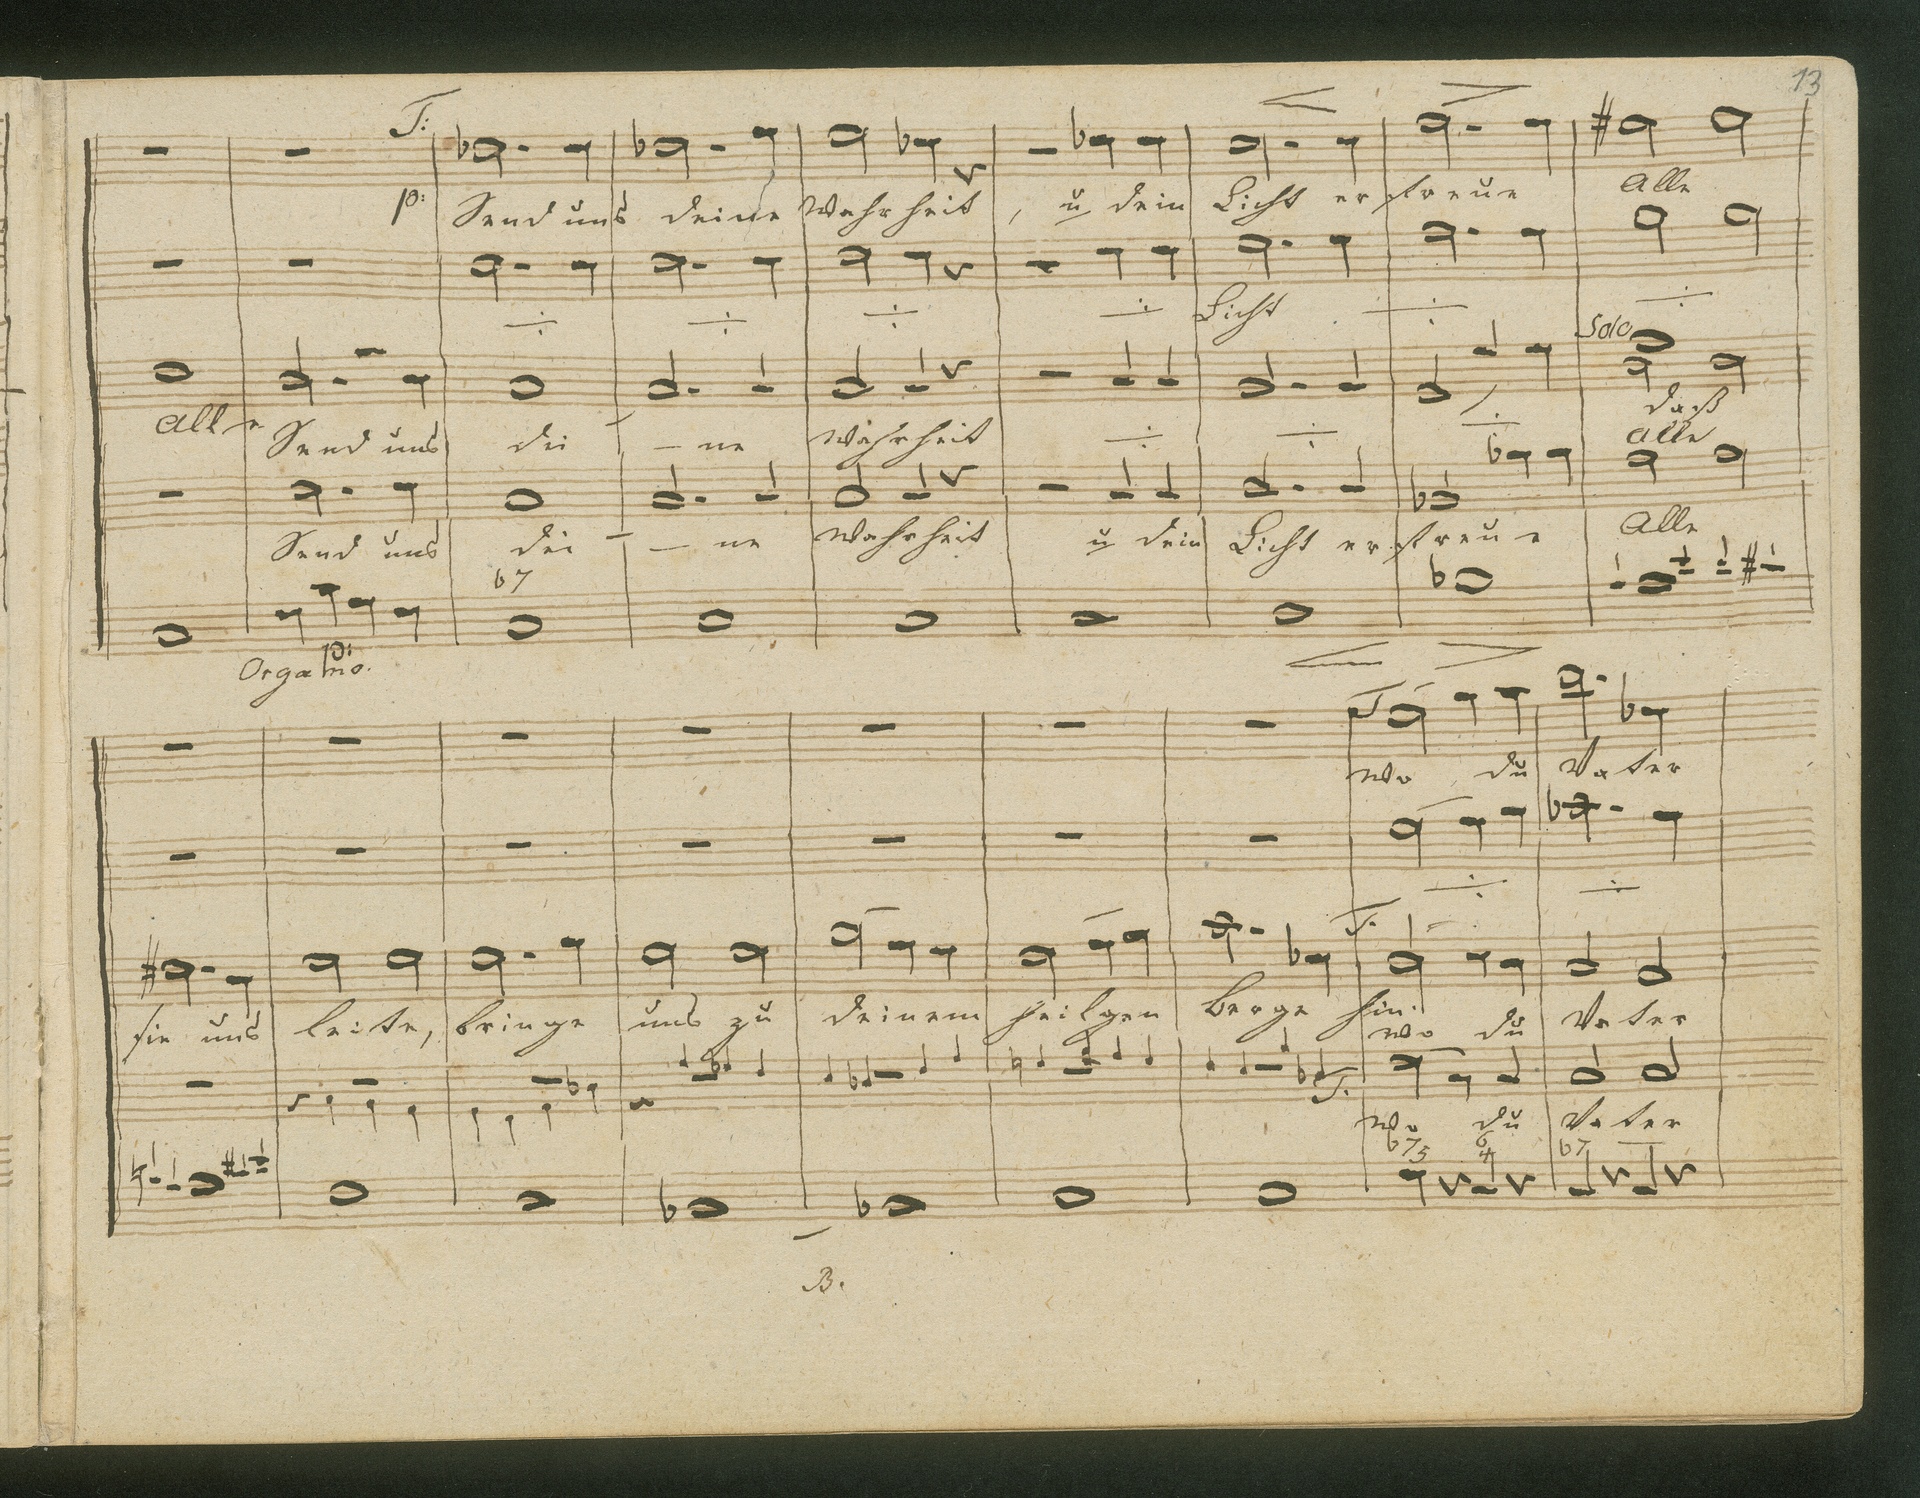 13
T:
p: Send uns deine Wahrheit, u dein Licht erfreue Alle
Licht
Solo
Alle Send uns dei - ne Wahrheit daß
Alle
Send uns dei - - ne Wahrheit u dein Licht erfreue Alle
b7
p:
Organo.
T
wo du Vater
T.
sie uns leite, bringe uns zu deinem heilgen Berge hin:
wo du Vater
T.
wo du Vater
b7 5 6 4 b7
B.